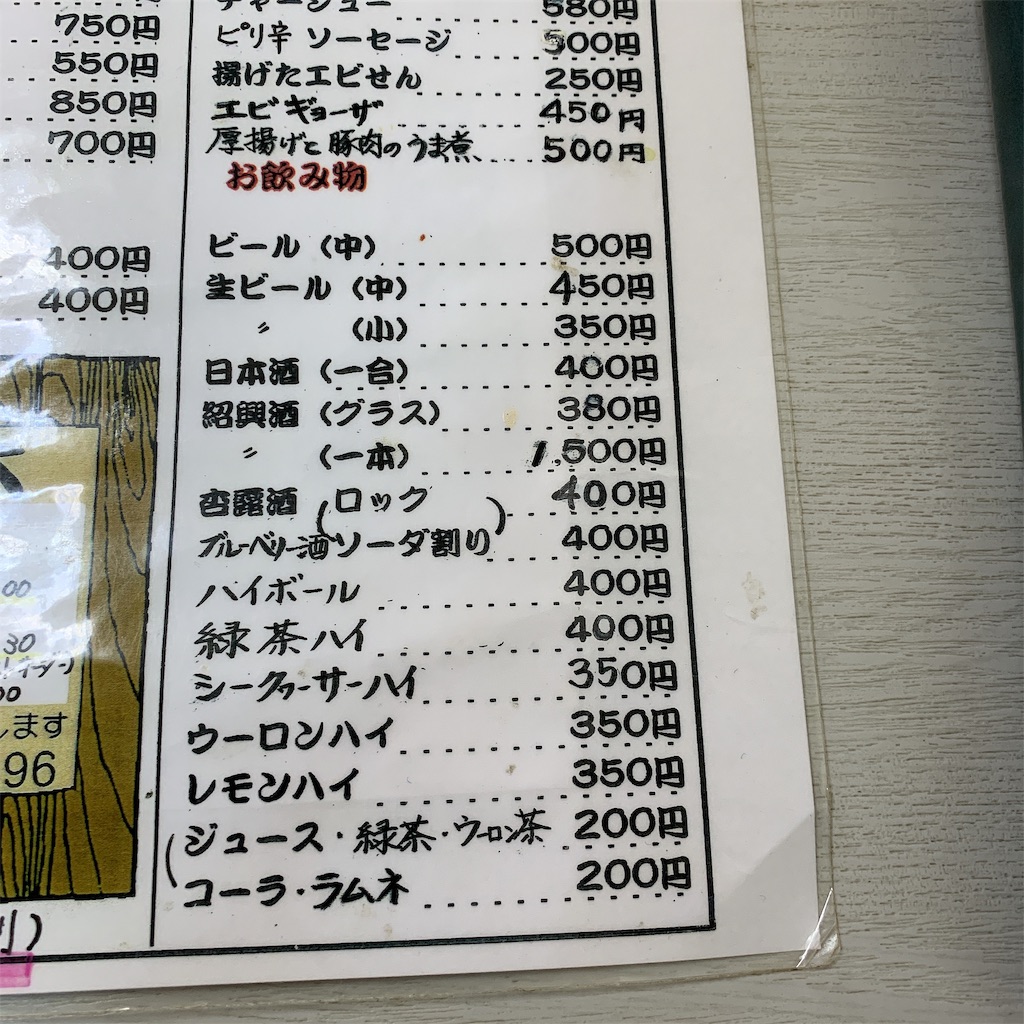 750円
550円
850円
700円
400円
400円
00
30
00
します
96
チャーシュー 580円
ピリ辛 ソーセージ 500円
揚げたエビせん 250円
エビギョーザ 450円
厚揚げと豚肉のうま煮 500円
お飲み物
ビール(中) 500円
生ビール(中) 450円
〃 (小) 350円
日本酒(一合) 400円
紹興酒(グラス) 380円
〃 (一本) 1,500円
杏露酒(ロック 400円
ブルーベリー酒 ソーダ割り) 400円
ハイボール 400円
緑茶ハイ 400円
シークヮーサーハイ 350円
ウーロンハイ 350円
レモンハイ 350円
(ジュース・緑茶・ウーロン茶 200円
コーラ・ラムネ 200円